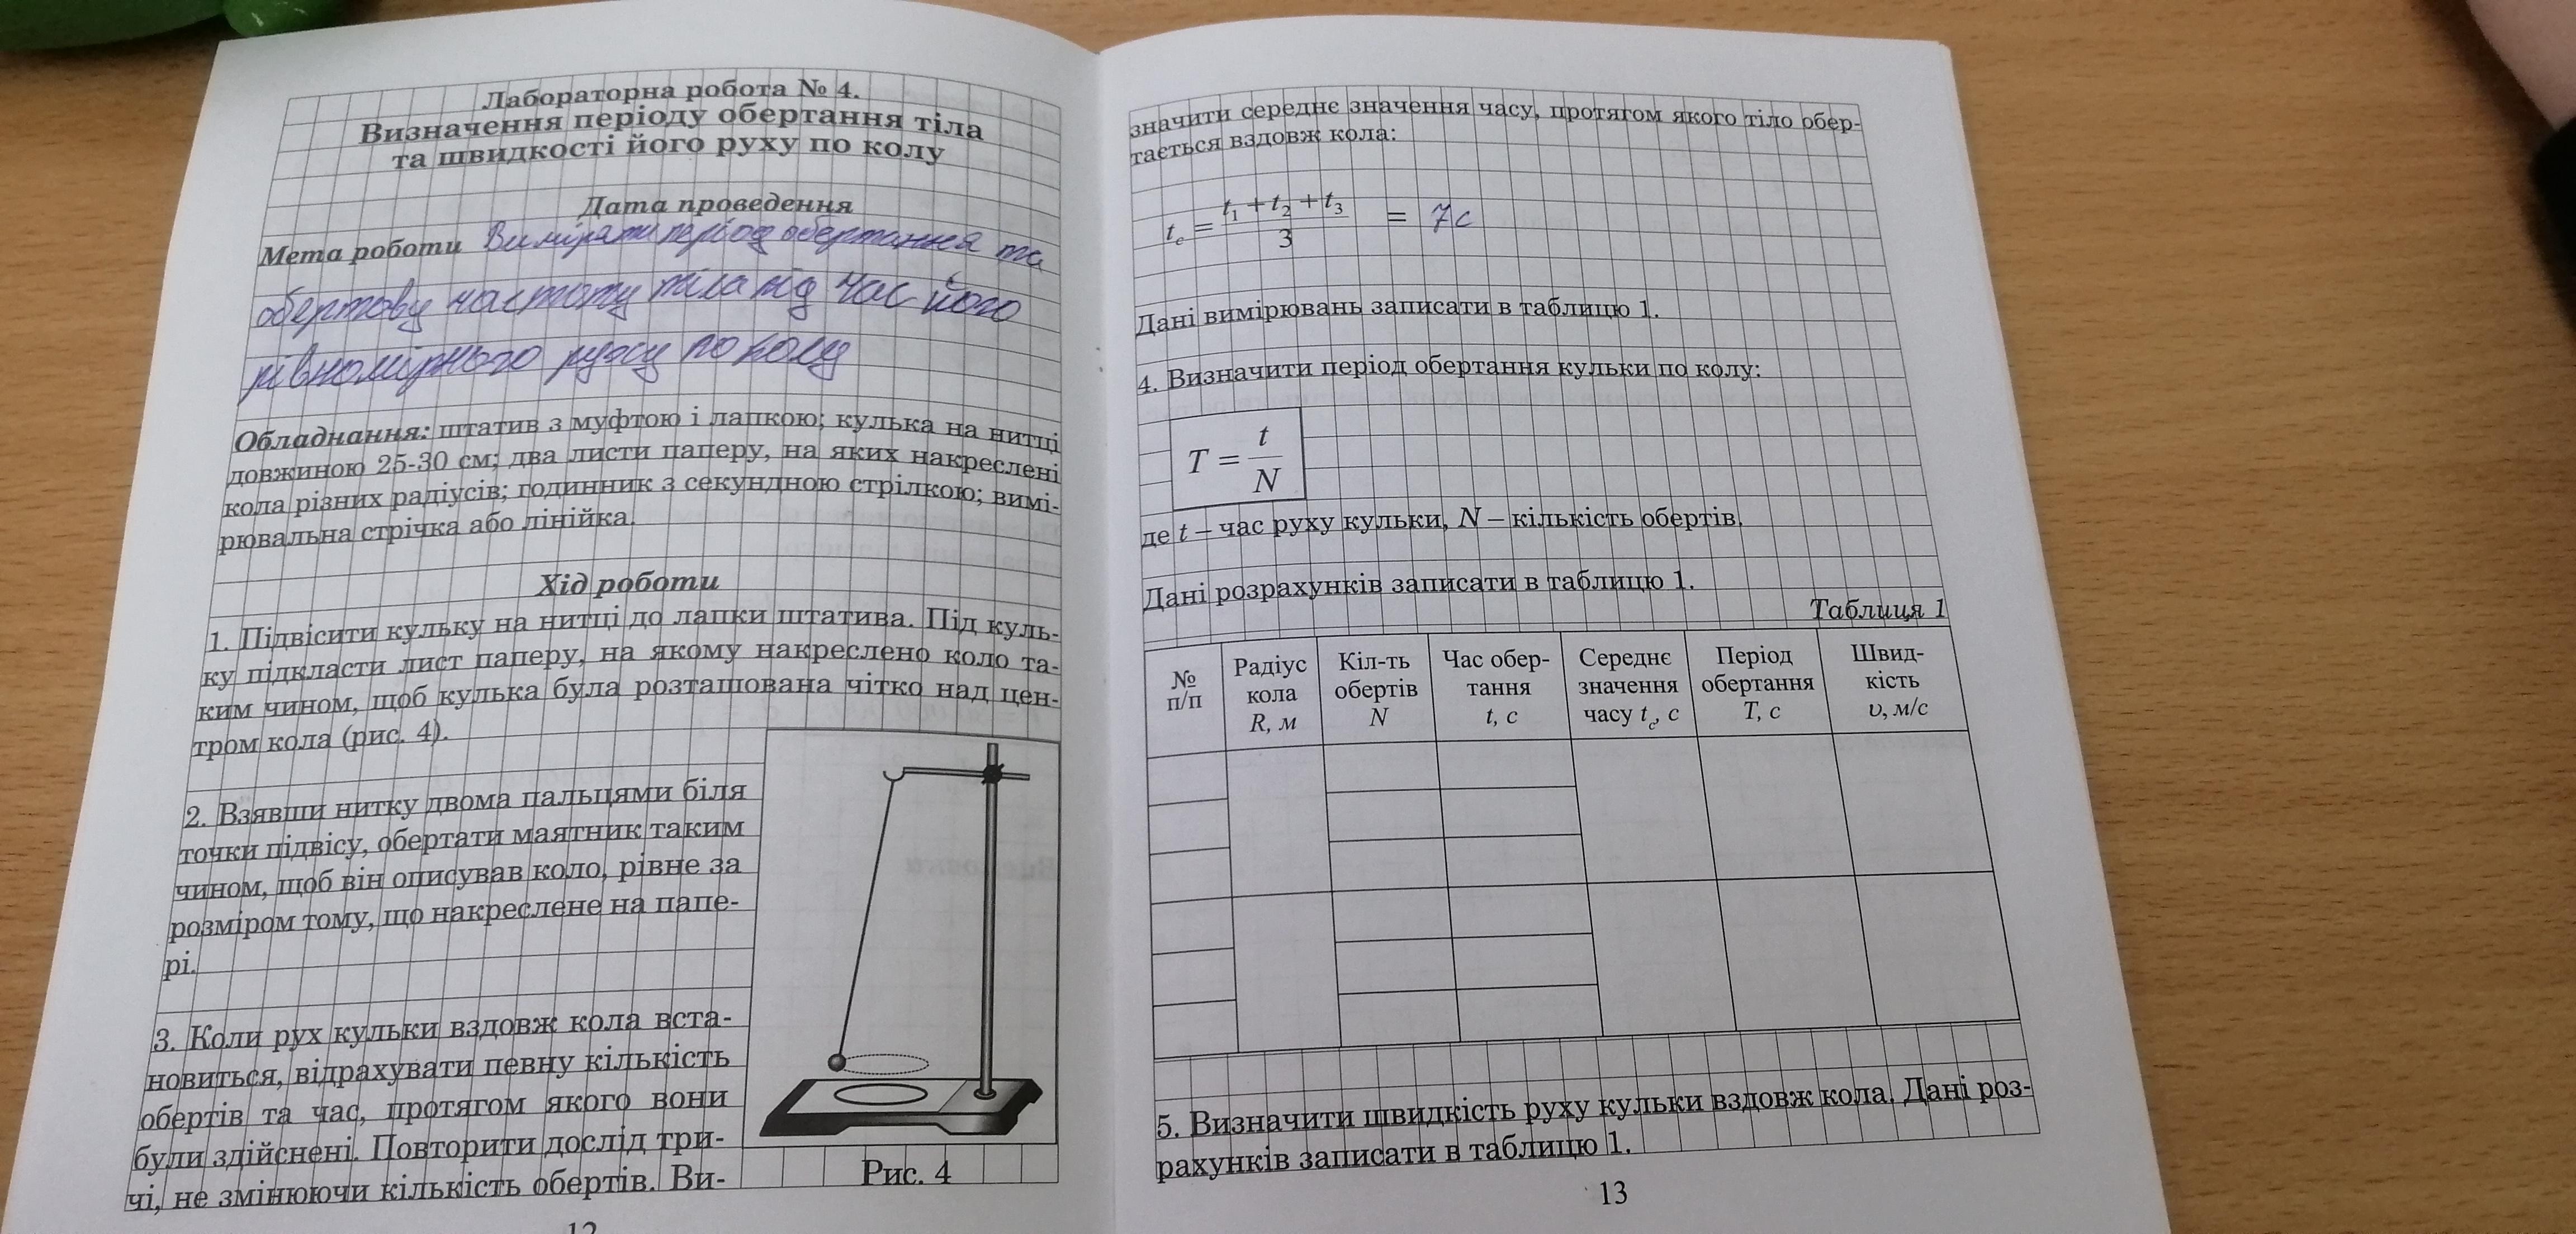 Лабораторна робота № 4.
Визначення періоду обертання тіла
та швидкості його руху по колу
Дата проведення
Мета роботи Виміряти період обертання та
обертову частоту тіла під час його
рівномірного руху по колу
Обладнання: штатив з муфтою і лапкою; кулька на нитці
довжиною 25-30 см; два листи паперу, на яких накреслені
кола різних радіусів; годинник з секундною стрілкою; вимі-
рювальна стрічка або лінійка.
Хід роботи
1. Підвісити кульку на нитці до лапки штатива. Під куль-
ку підкласти лист паперу, на якому накреслено коло та-
ким чином, щоб кулька була розташована чітко над цен-
тром кола (рис. 4).
2. Взявши нитку двома пальцями біля
точки підвісу, обертати маятник таким
чином, щоб він описував коло, рівне за
розміром тому, що накреслене на папе-
рі.
3. Коли рух кульки вздовж кола вста-
новиться, відрахувати певну кількість
обертів та час, протягом якого вони
були здійснені. Повторити дослід три-
чі, не змінюючи кількість обертів. Ви-
Рис. 4
12
значити середнє значення часу, протягом якого тіло обер-
тається вздовж кола:
t_c = (t₁ + t₂ + t₃) / 3 = 7с
Дані вимірювань записати в таблицю 1.
4. Визначити період обертання кульки по колу:
T = t / N
де t – час руху кульки, N – кількість обертів.
Дані розрахунків записати в таблицю 1.
Таблиця 1
№ п/п | Радіус кола R, м | Кіл-ть обертів N | Час обер-тання t, с | Середнє значення часу t_c, с | Період обертання T, с | Швид-кість υ, м/с
5. Визначити швидкість руху кульки вздовж кола. Дані роз-
рахунків записати в таблицю 1.
13